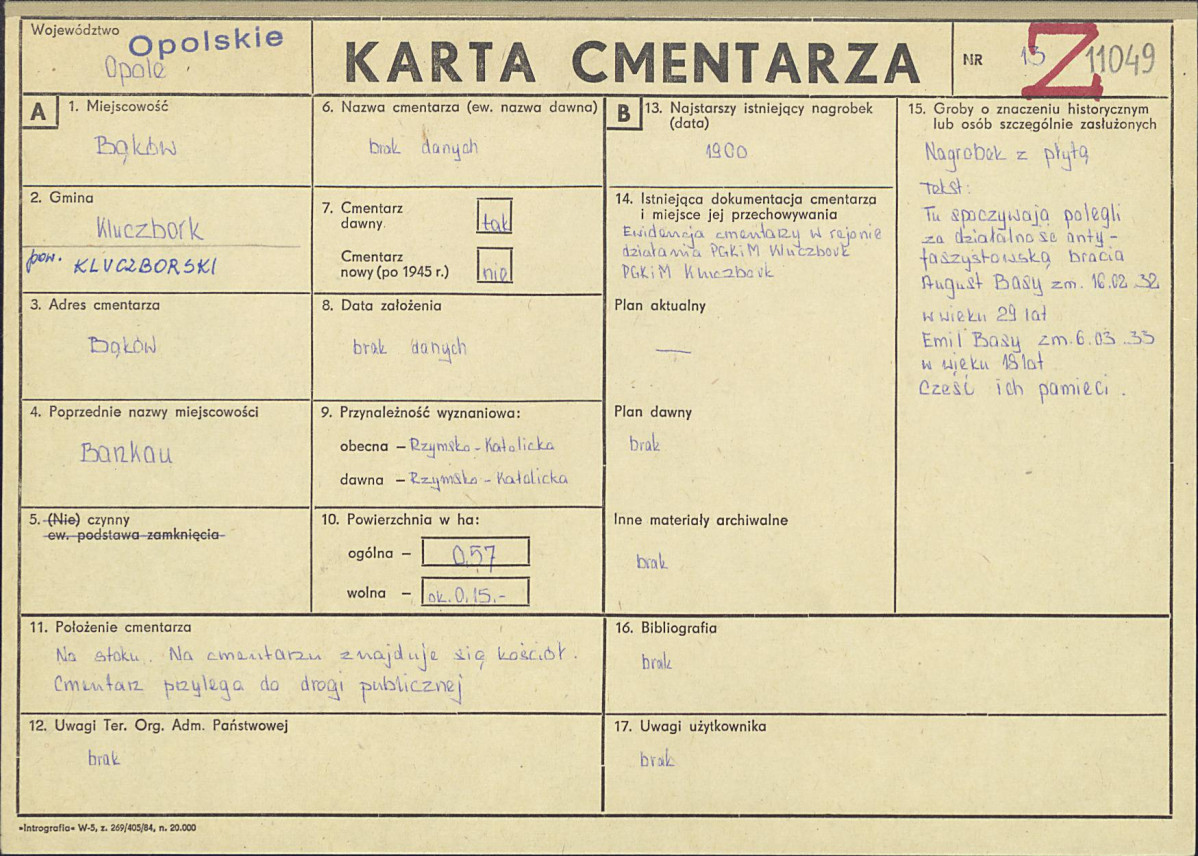 Województwo Opolskie
Opole
KARTA CMENTARZA
NR 13 Z 11049
A
1. Miejscowość
Bąków
2. Gmina
Kluczbork
pow. KLUCZBORSKI
3. Adres cmentarza
Bąków
4. Poprzednie nazwy miejscowości
Bankau
5. (Nie) czynny
ew. podstawa zamknięcia
6. Nazwa cmentarza (ew. nazwa dawna)
brak danych
7. Cmentarz
dawny tak
Cmentarz
nowy (po 1945 r.) nie
8. Data założenia
brak danych
9. Przynależność wyznaniowa:
obecna – Rzymsko-Katolicka
dawna – Rzymsko-Katolicka
10. Powierzchnia w ha:
ogólna – 0,57
wolna – ok. 0,15.-
11. Położenie cmentarza
Na stoku. Na cmentarzu znajduje się kościół.
Cmentarz przylega do drogi publicznej
12. Uwagi Ter. Org. Adm. Państwowej
brak
B
13. Najstarszy istniejący nagrobek
(data)
1900
14. Istniejąca dokumentacja cmentarza
i miejsce jej przechowywania
Ewidencja cmentarzy w rejonie
działania PGKiM Kluczbork
PGKiM Kluczbork
Plan aktualny
—
Plan dawny
brak
Inne materiały archiwalne
brak
15. Groby o znaczeniu historycznym
lub osób szczególnie zasłużonych
Nagrobek z płytą
Tekst:
Tu spoczywają polegli
za działalność anty-
faszystowską bracia
August Basy zm. 16.02.32
w wieku 29 lat
Emil Basy zm. 6.03.33
w wieku 18 lat
Cześć ich pamięci.
16. Bibliografia
brak
17. Uwagi użytkownika
brak
»Intrografia« W-5, z. 269/405/84, n. 20.000